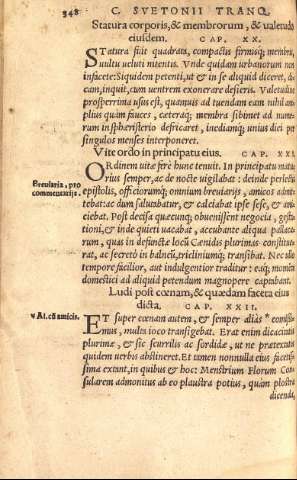 348 C. SVETONII TRANQ.
Statura corporis, & membrorum, & valetudo
eiusdem. CAP. XX.
STatura fuit quadrata, compactis firmisq; membris,
uultu ueluti nitentis. Vnde quidam urbanorum non
infacete: Siquidem petenti, ut & in se aliquid diceret, di-
cam, inquit, cum uentrem exonerare desieris. Valetudine
prosperrima usus est, quamuis ad tuendam eam nihil am-
plius quàm fauces, cæteraq; membra sibimet ad nume-
rum in sphæristerio defricaret, inediamq; unius diei per
singulos menses interponeret.
Vitę ordo in principatu eius. CAP. XXI.
ORdinem uitæ ferè hunc tenuit. In principatu matu
rius semper, ac de nocte uigilabat: deinde perlectis
Breuiaria, pro commentarijs.
epistolis, officiorumq; omnium breuiarijs, amicos admit-
tebat: ac dum salutabatur, & calciabat ipse sese, & ami-
ciebat. Post decisa quæcunq; obuenissent negocia, gesta-
tioni, & inde quieti uacabat, accubante aliqua pallaca-
rum, quas in defunctæ locū Cænidis plurimas constitue-
rat, ac secretò in balneū, tricliniumq; transibat. Nec ullo
tempore facilior, aut indulgentior traditur: eaq; momēta
domestici ad aliquid petendum magnopere captabant.
Ludi post cœnam, & quædam faceta eius
dicta. CAP. XXII.
v Al. cū amicis.
ET super cœnam autem, & semper aliâs * comissi-
mus, multa ioco transigebat. Erat enim dicacitatis
plurimæ, & sic scurrilis ac sordidæ, ut ne prætextatis
quidem uerbis abstineret. Et tamen nonnulla eius facetis-
sima extant, in quibus & hoc: Menstrium Florum Con-
sularem admonitus ab eo plaustra potius, quàm plostra
dicenda,